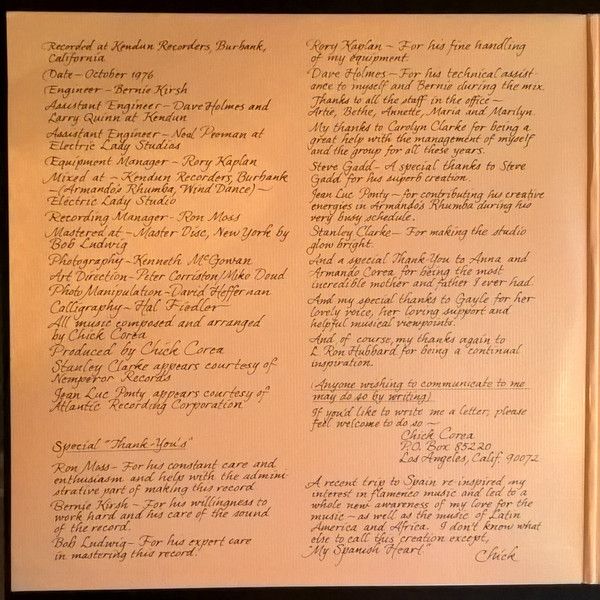 Recorded at Kendun Recorders, Burbank,
California
Date - October 1976
Engineer - Bernie Kirsh
Assistant Engineer - Dave Holmes and
Larry Quinn at Kendun
Assistant Engineer - Neal Peoman at
Electric Lady Studios
Equipment Manager - Rory Kaplan
Mixed at - Kendun Recorders, Burbank
-(Armando's Rhumba, Wind Dance)-
Electric Lady Studio
Recording Manager - Ron Moss
Mastered at - Master Disc, New York by
Bob Ludwig
Photography - Kenneth McGowan
Art Direction - Peter Corriston/Miko Doud
Photo Manipulation - David Heffernan
Calligraphy - Hal Fiedler
All music composed and arranged
by Chick Corea
Produced by Chick Corea
Stanley Clarke appears courtesy of
Nemperor Records
Jean Luc Ponty appears courtesy of
Atlantic Recording Corporation
Special "Thank-You's"
Ron Moss - For his constant care and
enthusiasm and help with the admini-
strative part of making this record.
Bernie Kirsh - For his willingness to
work hard and his care of the sound
of the record.
Bob Ludwig - For his expert care
in mastering this record.
Rory Kaplan - For his fine handling
of my equipment.
Dave Holmes - For his technical assist-
ance to myself and Bernie during the mix.
Thanks to all the staff in the office -
Artie, Bethe, Annette, Maria and Marilyn.
My thanks to Carolyn Clarke for being a
great help with the management of myself
and the group for all these years.
Steve Gadd - A special thanks to Steve
Gadd for his superb creation.
Jean Luc Ponty - for contributing his creative
energies in Armando's Rhumba during his
very busy schedule.
Stanley Clarke - For making the studio
glow bright.
And a special Thank You to Anna and
Armando Corea for being the most
incredible mother and father I ever had.
And my special thanks to Gayle for her
lovely voice, her loving support and
helpful musical viewpoints.
And, of course, my thanks again to
L. Ron Hubbard for being a continual
inspiration.
(Anyone wishing to communicate to me
may do so by writing)
If you'd like to write me a letter, please
feel welcome to do so -
Chick Corea
P.O. Box 85220
Los Angeles, Calif. 90072
A recent trip to Spain re-inspired my
interest in flamenco music and led to a
whole new awareness of my love for the
music - as well as the music of Latin
America and Africa. I don't know what
else to call this creation except,
"My Spanish Heart"
Chick